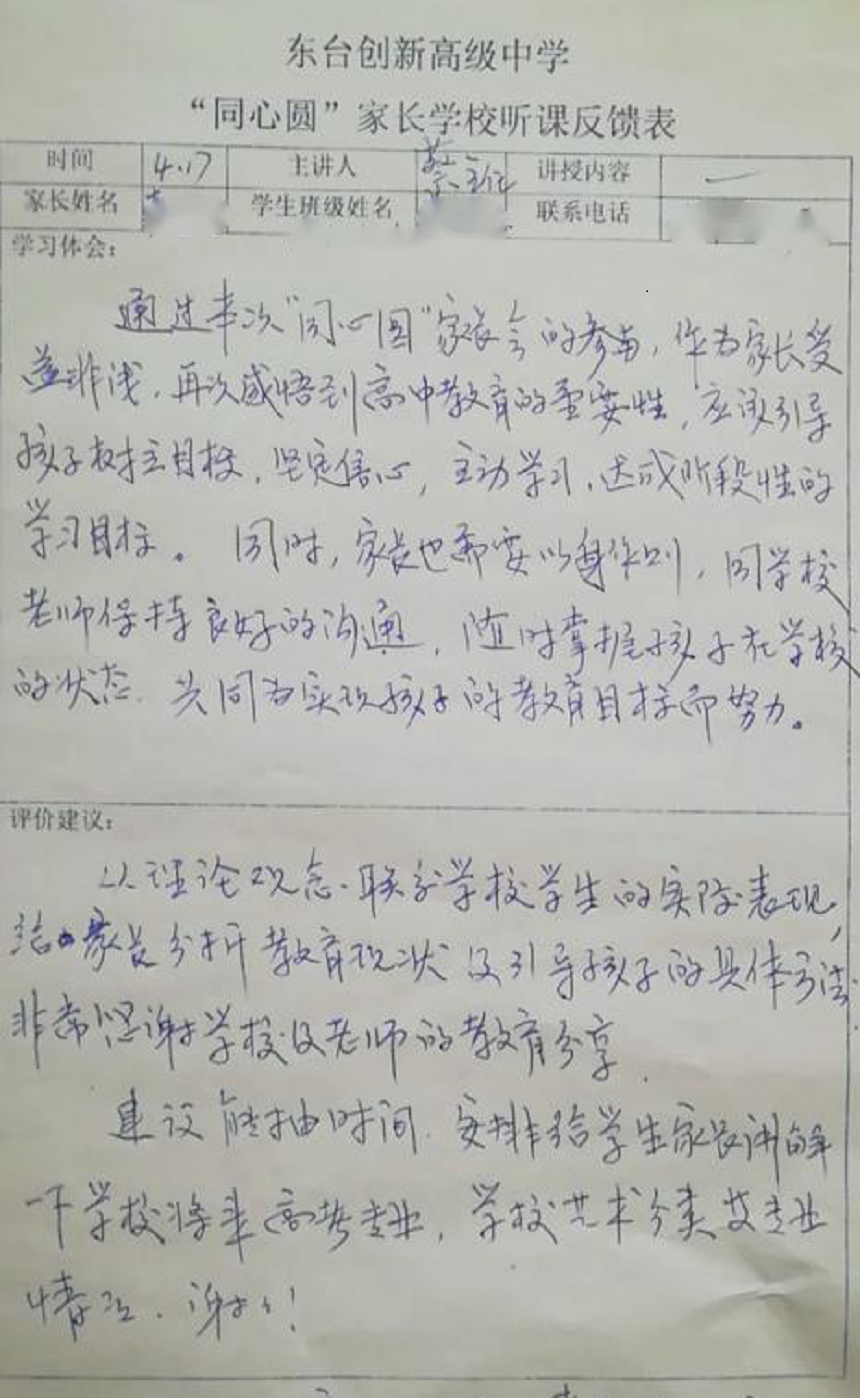 东台创新高级中学
“同心圆”家长学校听课反馈表
时间 4.17 主讲人 蔡主任 讲授内容 一
家长姓名 学生班级姓名 联系电话
学习体会：
通过本次“同心圆”家长会的参与，作为家长受
益非浅，再次感悟到高中教育的重要性，应该引导
孩子树立目标，坚定信心，主动学习，达成阶段性的
学习目标。同时，家长也需要以身作则，同学校
老师保持良好的沟通，随时掌握孩子在学校
的状态，共同为实现孩子的教育目标而努力。
评价建议：
以理论观念、联系学校学生的实际表现，
给家长分析教育现状及引导孩子的具体方法，
非常感谢学校及老师的教育分享。
建议能抽时间，安排给学生家长讲解
一下学校将来高考专业，学校艺术分类及专业
情况，谢谢！